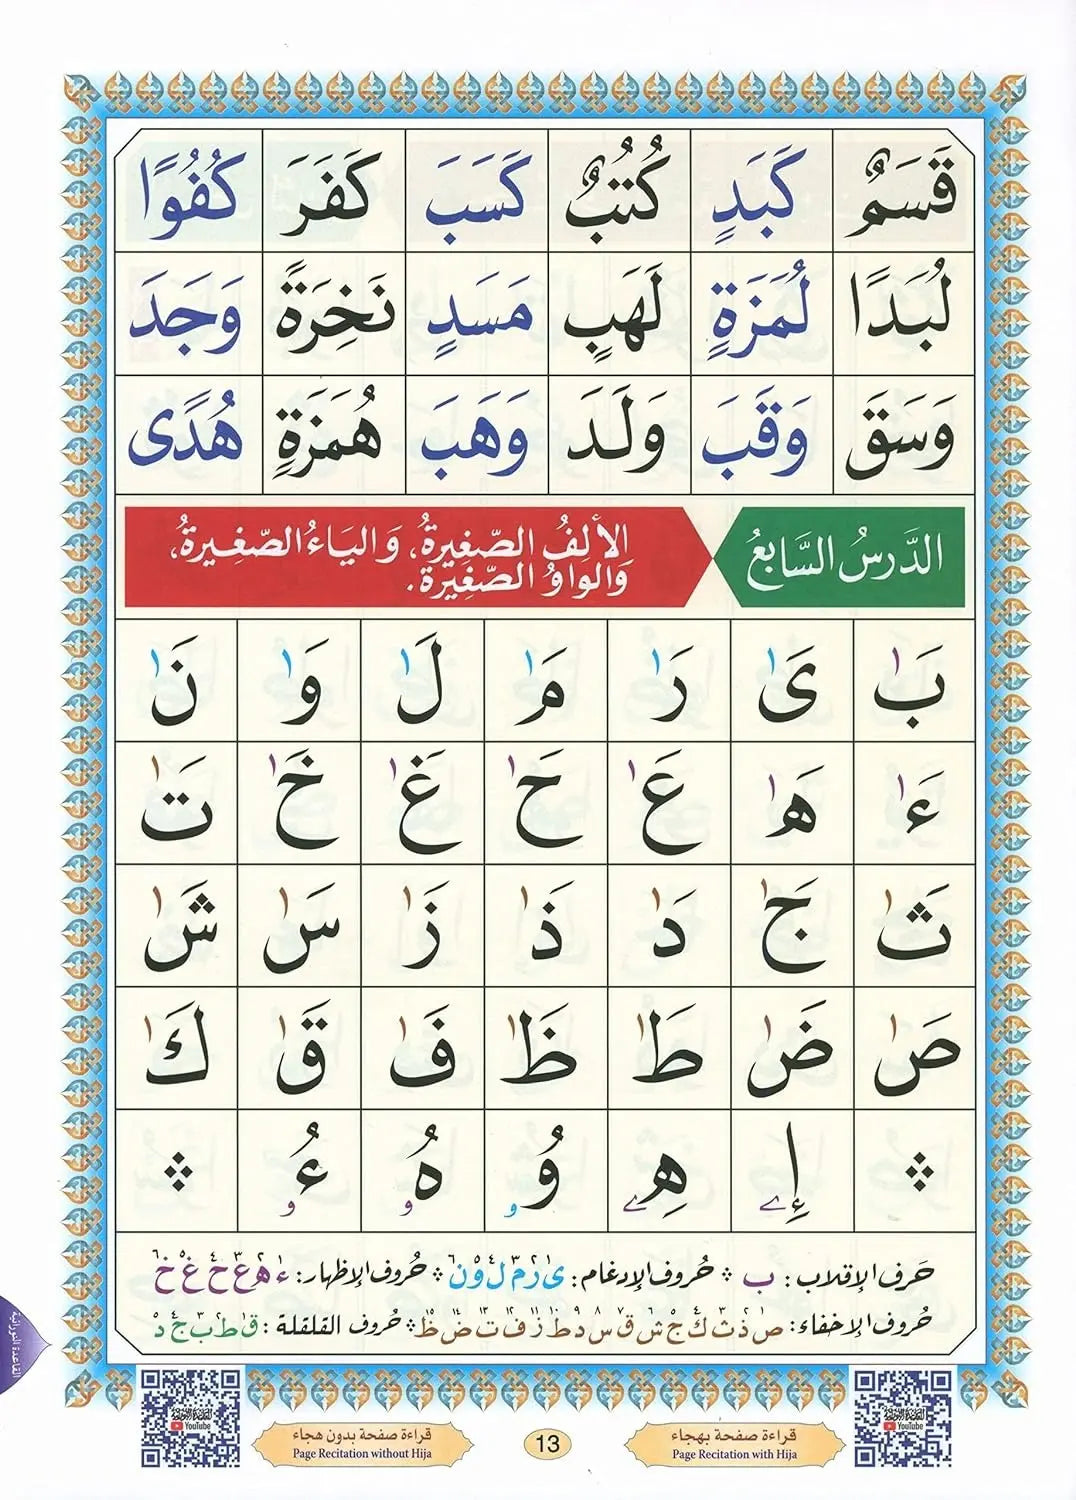 قَسَمٌ كَبَدٍ كُتُبٌ كَسَبَ كَفَرَ كُفُوًا
لُبَدًا لُمَزَةٍ لَهَبٍ مَسَدٍ نَخِرَةً وَجَدَ
وَسَقَ وَقَبَ وَلَدَ وَهَبَ هُمَزَةٍ هُدًى
الدَّرسُ السَّابعُ
الألِفُ الصَّغِيرةُ، وَاليَاءُ الصَّغِيرةُ،
وَالواوُ الصَّغِيرة.
بَٰ ىَٰ رَٰ مَٰ لَٰ وَٰ نَٰ
ءَٰ هَٰ عَٰ حَٰ غَٰ خَٰ تَٰ
ثَٰ جَٰ دَٰ ذَٰ زَٰ سَٰ شَٰ
صَٰ ضَٰ طَٰ ظَٰ فَٰ قَٰ كَٰ
إِۦ هِۦ وُۥ هُۥ ءُۥ
حَرف الإقلاب: ب حُروف الإدغام: ى ر م ل و ن حُروف الإظهار: ء ه ع ح غ خ
حُروف الإخفاء: ص ذ ث ك ج ش ق س د ط ز ف ت ض ظ حُروف القلقلة: ق ط ب ج د
القاعدة النورانية
YouTube
قراءة صفحة بدون هجاء
Page Recitation without Hija
13
قراءة صفحة بهجاء
Page Recitation with Hija
YouTube